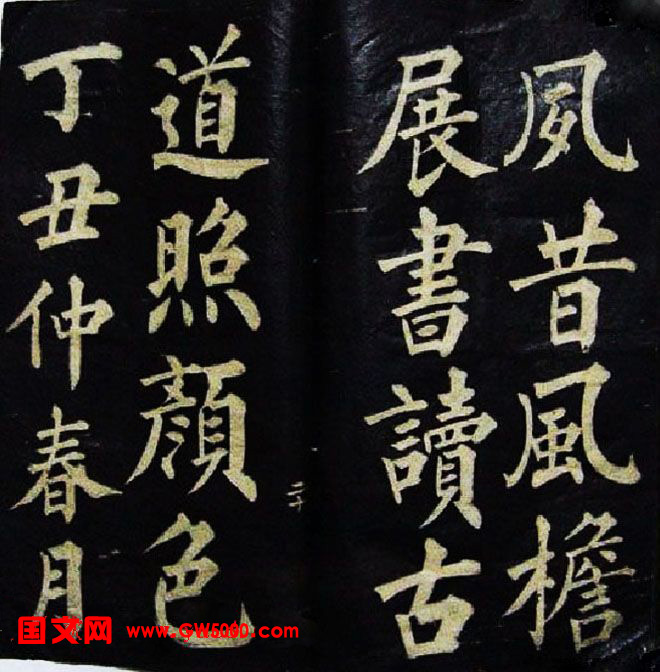 夙昔風檐
展書讀古
二十
道照顏色
丁丑仲春月
国文网 www.GW5000.com